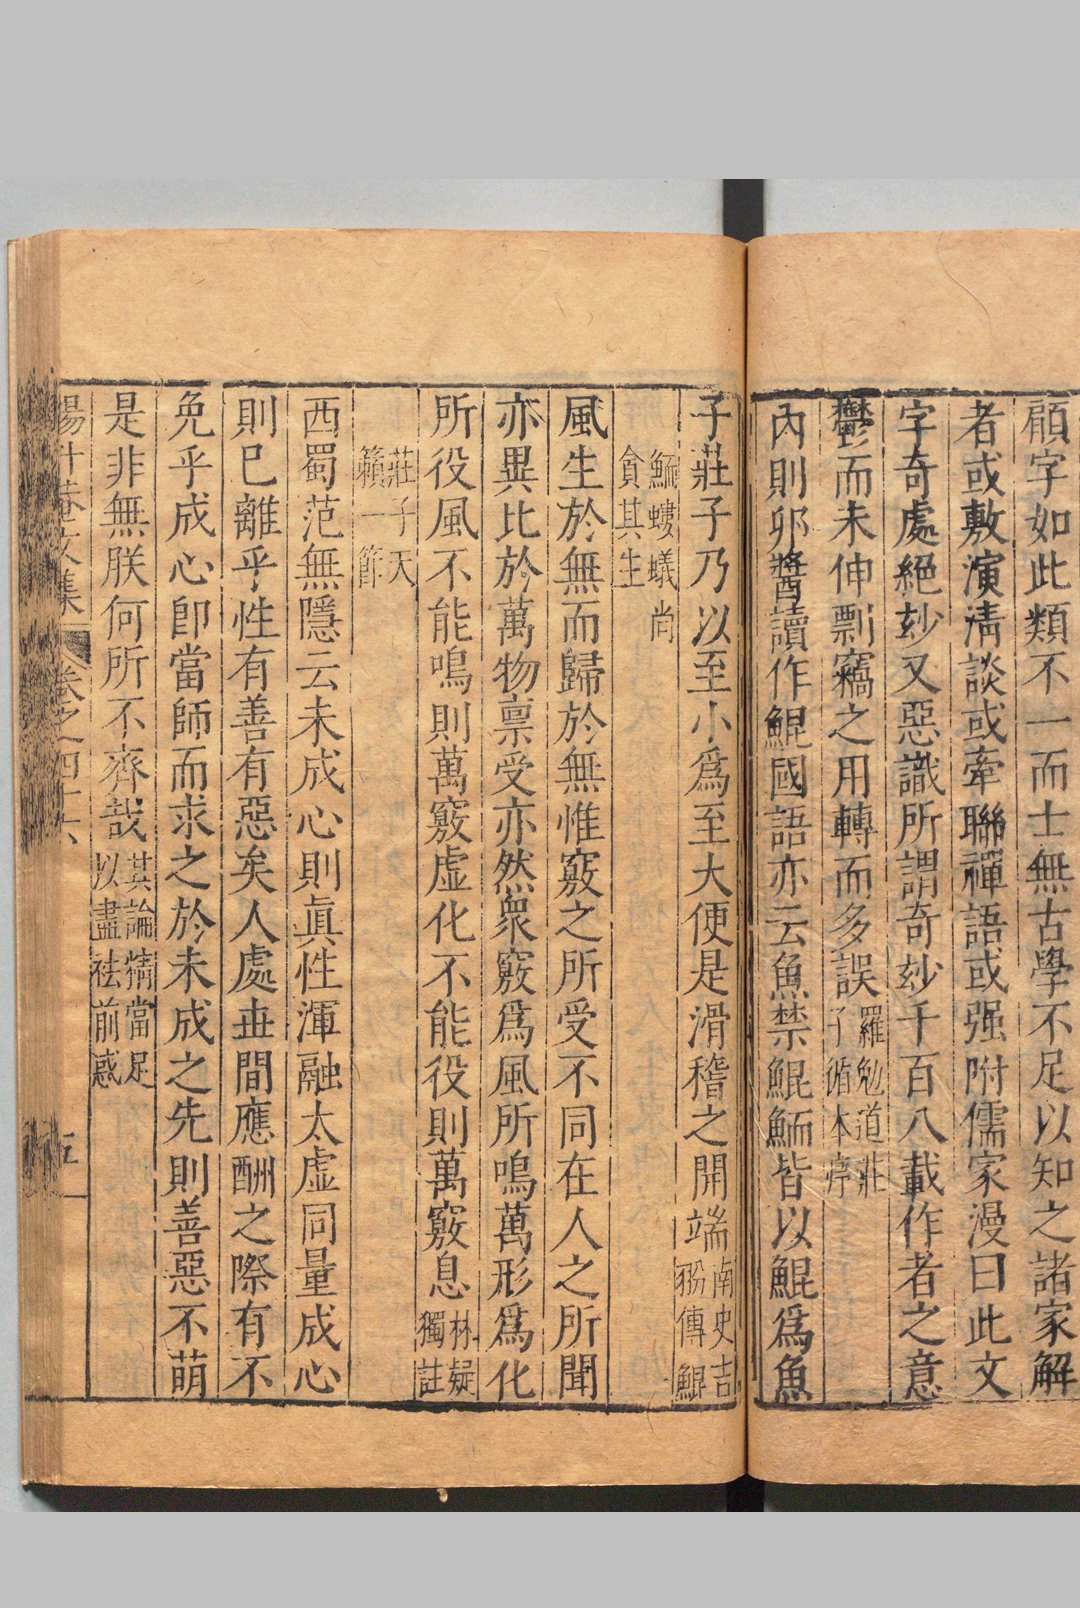 顧字如此類不一而士無古學不足以知之諸家解
者或敷演淸談或牽聯禪語或强附儒家漫曰此文
字奇處絕妙又惡識所謂奇妙千百八載作者之意
鬱而未伸剽竊之用轉而多誤羅勉道莊
子循本序
內則卵醬讀作鯤國語亦云魚禁鯤鮞皆以鯤爲魚
子莊子乃以至小爲至大便是滑稽之開端南史吉
翂傳鯤
鮞螻蟻尚
貪其生
風生於無而歸於無惟竅之所受不同在人之所聞
亦異比於萬物禀受亦然衆竅爲風所鳴萬形爲化
所役風不能鳴則萬竅虛化不能役則萬竅息林疑
獨註
莊子天
籟一節
西蜀范無隱云未成心則眞性渾融太虛同量成心
則已離乎性有善有惡矣人處世間應酬之際有不
免乎成心卽當師而求之於未成之先則善惡不萌
是非無朕何所不齊哉其論精當足
以盡祛前惑
楊升菴文集 卷之四十六 五